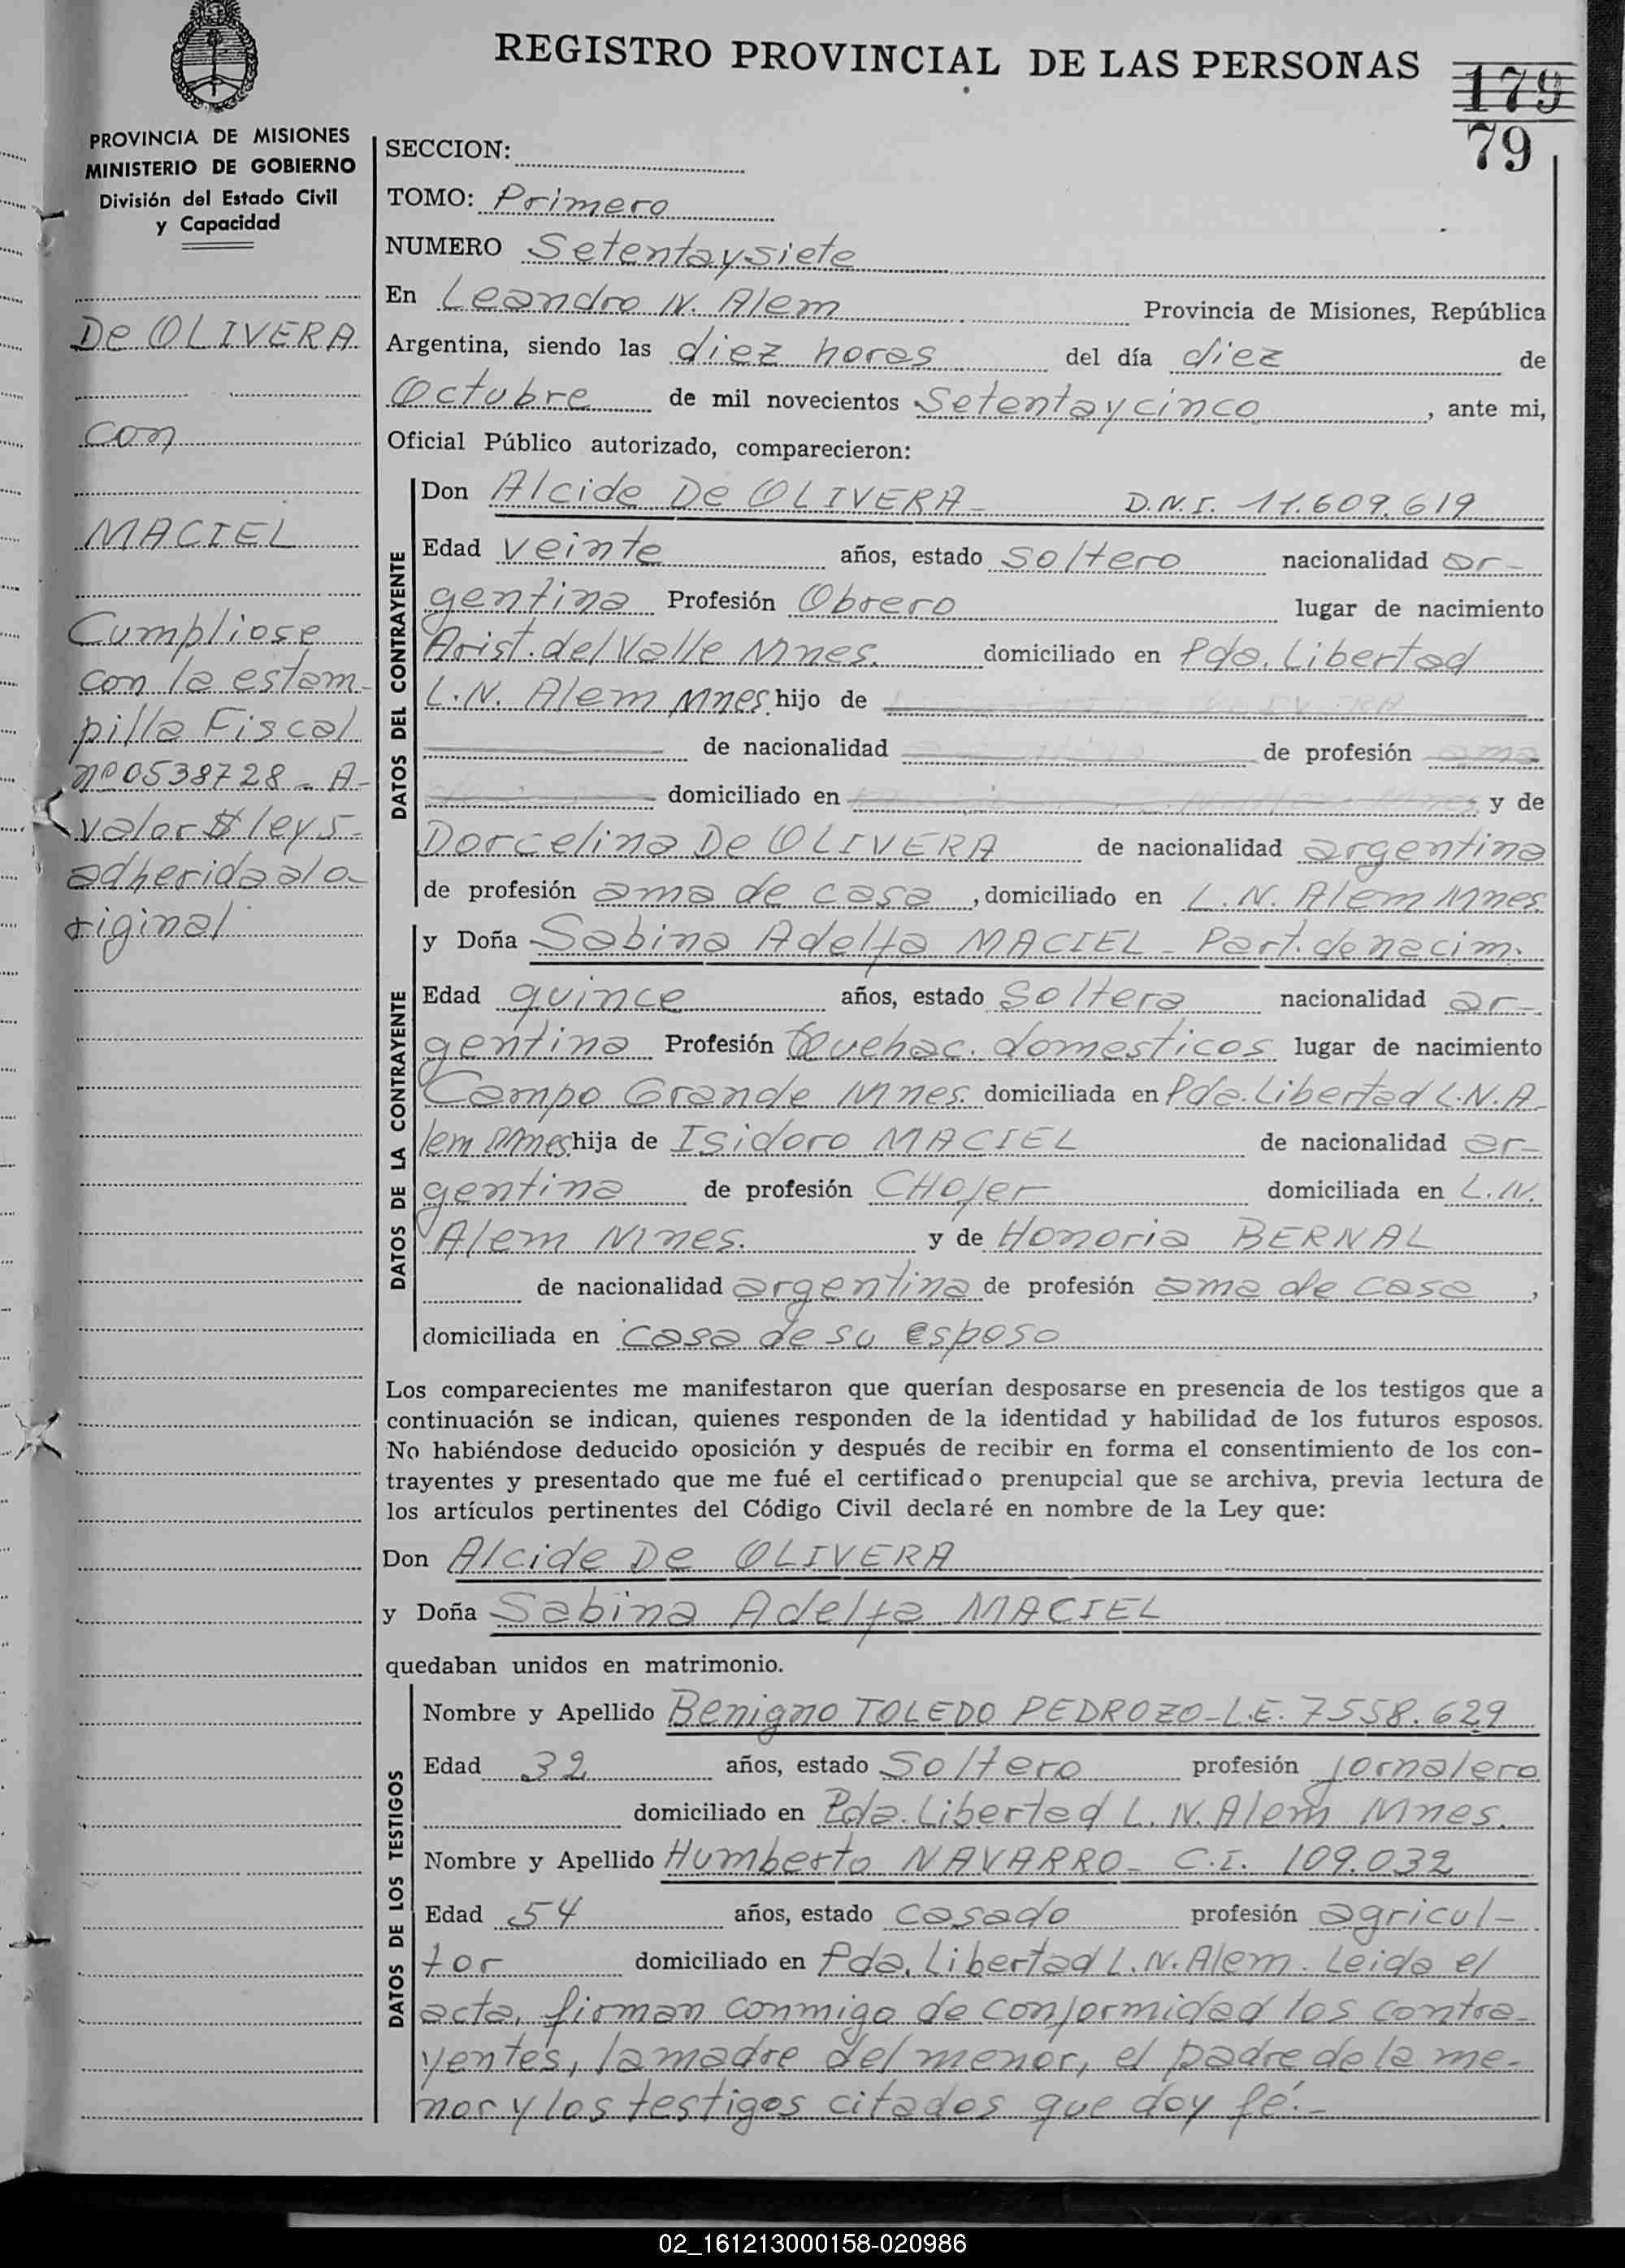 REGISTRO PROVINCIAL DE LAS PERSONAS
179
79
PROVINCIA DE MISIONES
MINISTERIO DE GOBIERNO
División del Estado Civil
y Capacidad
De OLIVERA
con
MACIEL
Cumpliose
con la estam-
pilla Fiscal
nº 0538728 - A-
valor $ ley 5-
adherida al o-
riginal
SECCION:
TOMO: Primero
NUMERO Setenta y siete
En Leandro N. Alem Provincia de Misiones, República
Argentina, siendo las diez horas del día diez de
Octubre de mil novecientos Setenta y cinco, ante mi,
Oficial Público autorizado, comparecieron:
DATOS DEL CONTRAYENTE
Don Alcide De OLIVERA - D.N.I. 11.609.619
Edad veinte años, estado soltero nacionalidad ar-
gentina Profesión Obrero lugar de nacimiento
Arist. del Valle Mnes. domiciliado en Pda. Libertad
L.N. Alem Mnes. hijo de
de nacionalidad de profesión
domiciliado en y de
Dorcelina De OLIVERA de nacionalidad argentina
de profesión ama de casa, domiciliado en L.N. Alem Mnes.
DATOS DE LA CONTRAYENTE
y Doña Sabina Adelfa MACIEL - Part. de nacim.
Edad quince años, estado Soltera nacionalidad ar-
gentina Profesión Quehac. domesticos lugar de nacimiento
Campo Grande Mnes. domiciliada en Pda. Libertad L.N.A-
lem Mnes hija de Isidoro MACIEL de nacionalidad ar-
gentina de profesión CHOfer domiciliada en L.N.
Alem Mnes. y de Honoria BERNAL
de nacionalidad argentina de profesión ama de casa,
domiciliada en casa de su esposo
Los comparecientes me manifestaron que querían desposarse en presencia de los testigos que a
continuación se indican, quienes responden de la identidad y habilidad de los futuros esposos.
No habiéndose deducido oposición y después de recibir en forma el consentimiento de los con-
trayentes y presentado que me fué el certificado prenupcial que se archiva, previa lectura de
los artículos pertinentes del Código Civil declaré en nombre de la Ley que:
Don Alcide De OLIVERA
y Doña Sabina Adelfa MACIEL
quedaban unidos en matrimonio.
DATOS DE LOS TESTIGOS
Nombre y Apellido Benigno TOLEDO PEDROZO - L.E. 7558.629
Edad 32 años, estado Soltero profesión jornalero
domiciliado en Pda. Libertad L.N. Alem Mnes.
Nombre y Apellido Humberto NAVARRO - C.I. 109.032
Edad 54 años, estado casado profesión agricul-
tor domiciliado en Pda. Libertad L.N. Alem. Leida el
acta, firman conmigo de conformidad los contra-
yentes, la madre del menor, el padre de la me-
nor y los testigos citados que doy fé.-
02_161213000158-020986